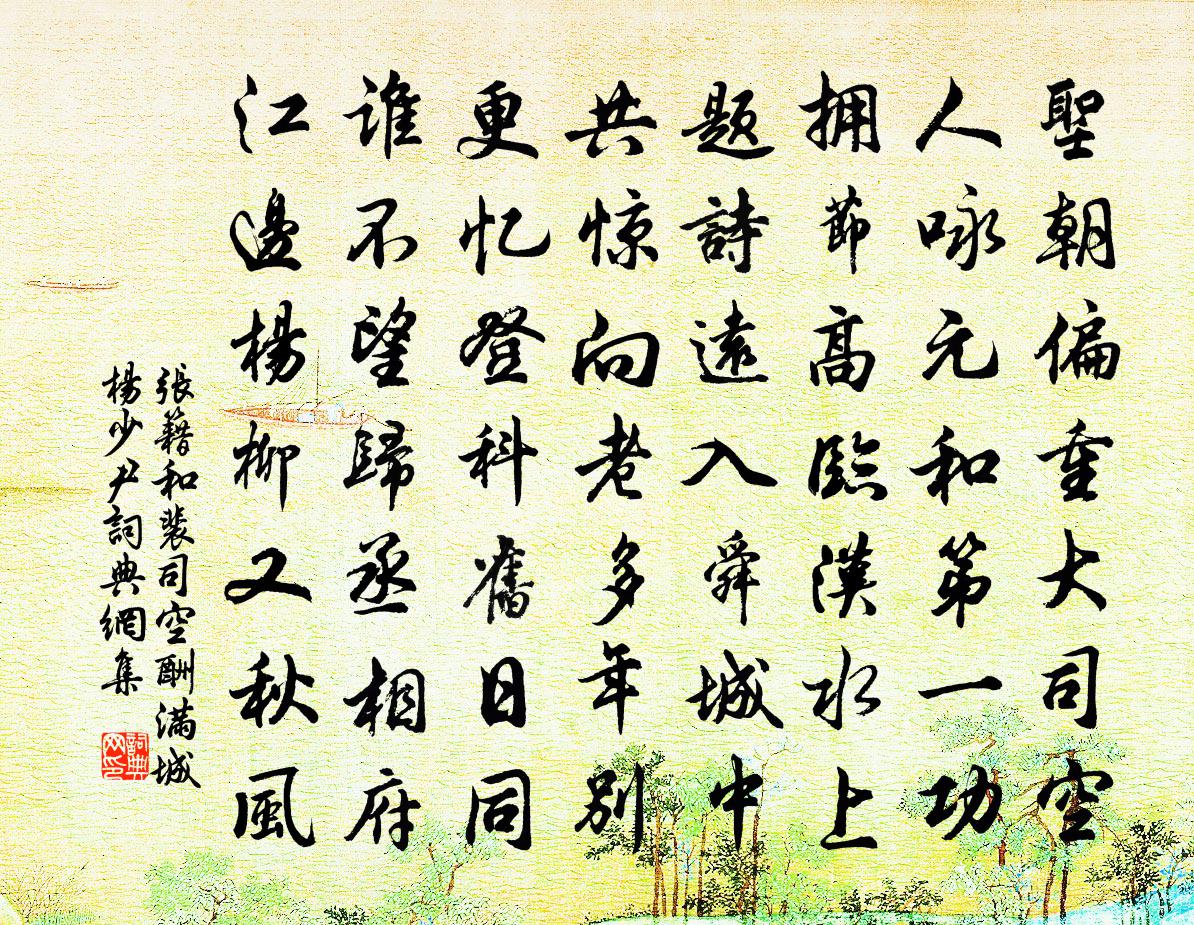 聖朝偏重大司空
人咏元和第一功
拥節高臨漢水上
题詩遠入舜城中
共惊向老多年别
更忆登科舊日同
谁不望歸丞相府
江邊楊柳又秋風
張籍和裴司空酬满城
楊少尹詞典網集
詞典网印